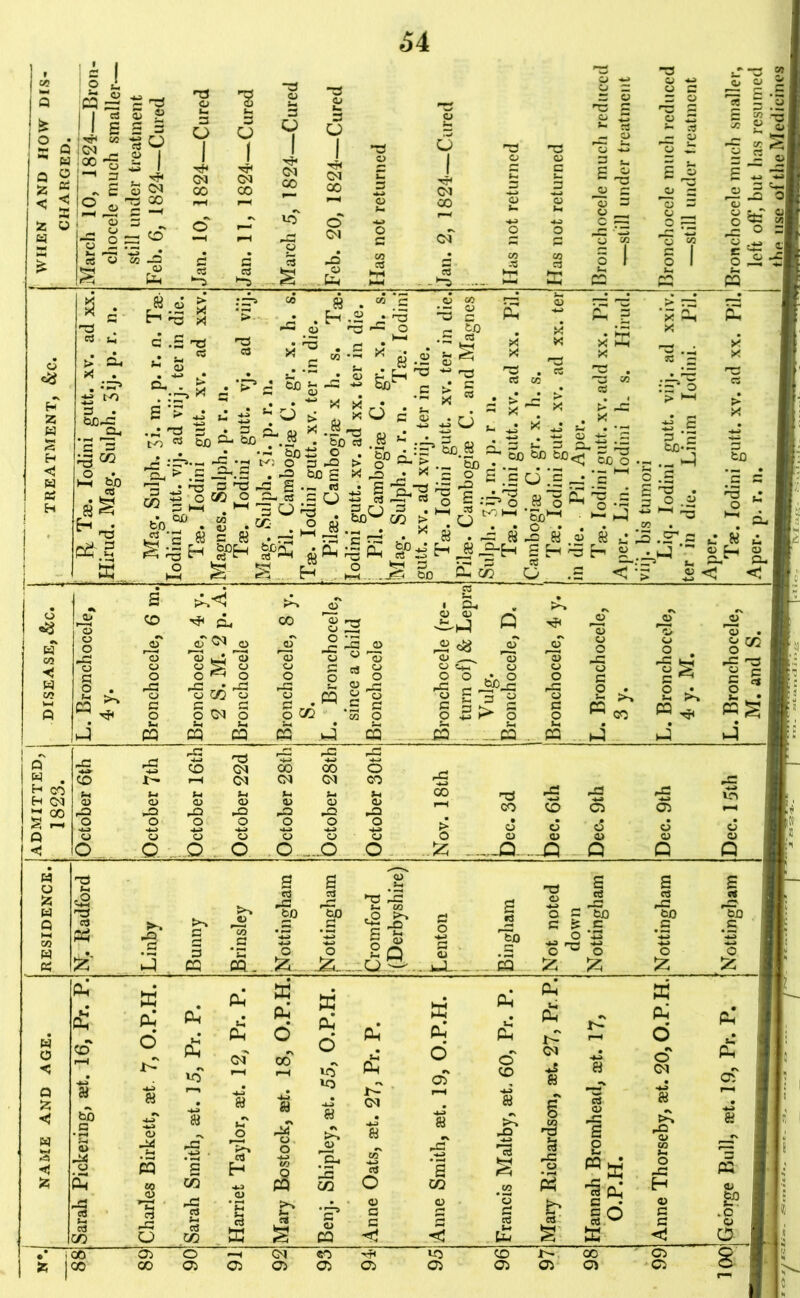 54
N°.
NAME AND AGE.
RESIDENCE.
ADMITTED, 1823.
DISEASE, &c.
TREATMENT, &c.
WHEN AND HOW DISCHARGED.
88 Sarah Pickering, æt. 16, Pr. P.
N. Radford
October 6th
L. Bronchocele,
4 y.
R Tæ. Iodini gutt. xv. ad xx.
Hirud. Mag. Sulph. ʒij. p. r. n.
March 10, 1824—Bron-
chocele much smaller—
still under treatment
89 Charles Birkett, æt 7, O.P.H.
Linby
October 7th
Bronchocele, 6 m.
Mag. Sulph. ʒi. m. p. r. n. Tæ
Iodini gutt. vij. ad viij. ter in die.
Feb. 6, 1824—Cured
90 Sarah Smith, æt. 15, Pr. P.
Bunny
October 16th
Bronchocele, 4 y.
2 S. M. 2 p. A.
Tæ. Iodini gutt. xv. ad xxv.
Magnes. Sulph. p. r. n.
Jan. 10, 1824—Cured
91 Harriet Taylor, æt. 12, Pr. P.
Brinsley
October 22d
Bronchocele
Tæ. Iodini gutt. vj. ad viij.
Mag. Sulph. ʒi. p. r. n.
Jan. 11, 1824—Cured
92 Mary Bostock, æt. 18, O.P.H.
Nottingham
October 28th
Bronchocele, 8 y.
S.
Pil. Cambogiæ C. gr. x. h. s.
Tæ. Iodini gutt. xv. ter in die.
March 5, 1824—Cured
93 Benj. Shipley, æt. 55, O.P.H.
Nottingham
October 28th
L. Bronchocele,
since a child
Pilæ. Cambogiæ x h. s. Tæ.
Iodini gutt. xv. ad xx. ter in die.
Feb. 20, 1824—Cured
94 Anne Oats, æt. 27, Pr. P.
Cromford
(Derbyshire)
October 30th
Bronchocele
Pil. Cambogiæ C. gr. x. h. s.
Mag. Sulph. p. r. n. Tæ. Iodini
gutt. xv. ad xviij. ter in die.
Has not returned
95 Ann Smith, æt. 19, O.P.H.
Lenton
Nov. 18th
Bronchocele (re-
turn of) & Lepra
Vulg.
Tæ. Iodini gutt. xv. ter in die.
Pilæ. Cambogiæ C. and Magnes
Sulph. ʒij. m. p. r. n.
Jan. 2, 1824—Cured
96 Francis Maltby, æt. 60, Pr. P.
Bingham
Dec. 3d
Bronchocele, D.
Tæ. Iodini gutt. xv. ad xx. Pil.
Cambogiæ C. gr. x. h. s.
Has not returned
97 Mary Richardson, æt. 27, Pr. P.
Not noted
down
Dec. 6th
Bronchocele, 4 y.
Tæ. Iodini gutt. xv. ad xx. ter
in die. Pil. Aper.
Has not returned
98 Hannah Bromhead, æt. 17,
O.P.H.
Nottingham
Dec. 9th
L. Bronchocele,
3 y.
Tæ Iodini gutt. xv. add xx. Pil.
Aper. Lin. Iodini h. s. Hirud.
viij. bis tumori
Bronchocele much reduced
—still under treatment
99 Anne Thorseby, æt. 20, O.P.H.
Nottingham
Dec. 9th
L. Bronchocele,
4 y. M.
Liq. Iodini gutt. viij. ad xxiv.
ter in die. Linim Iodini. Pil.
Aper.
Bronchocele much reduced
—still under treatment
100 George Bull, æt. 19, Pr. P.
Nottingham
Dec. 15th
L. Bronchocele,
M. and S.
Tæ. Iodini gutt. xv. ad xx. Pil.
Aper. p. r. n.
Bronchocele much smaller,
left off, but has resumed
the use of the Medicines